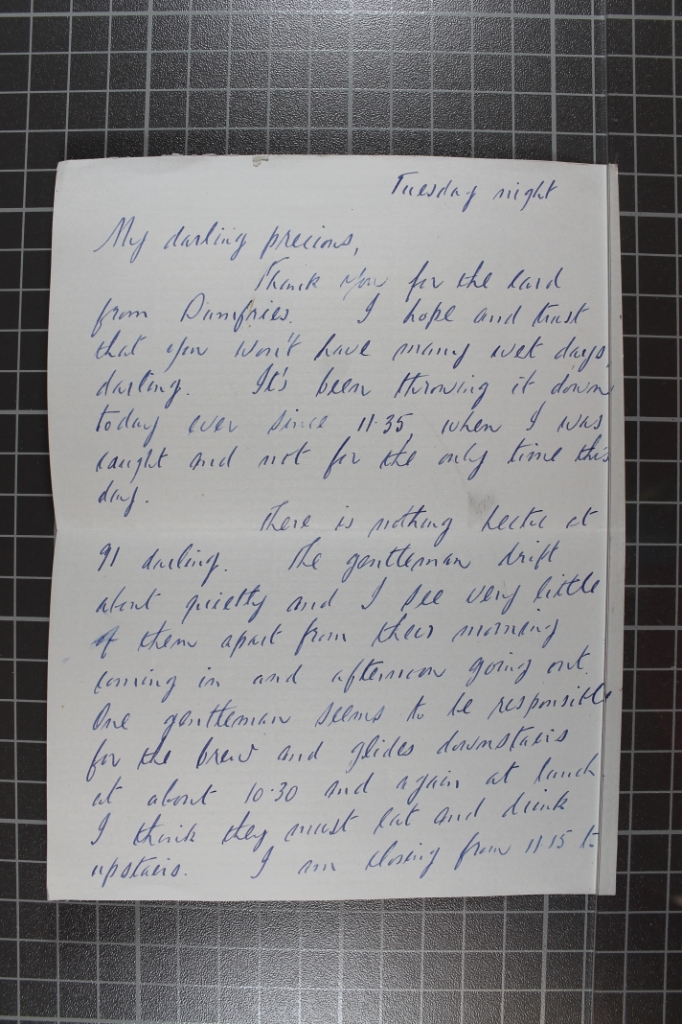 Tuesday night
My darling precious,
Thank you for the card
from Dumfries. I hope and trust
that you won't have many wet days,
darling. It's been throwing it down
today ever since 11.35, when I was
caught and not for the only time this
day.
There is nothing hectic at
91 darling. The gentleman drift
about quietly and I see very little
of them apart from their morning
coming in and afternoon going out.
One gentleman seems to be responsible
for the brew and glides downstairs
at about 10.30 and again at lunch
I think they must eat and drink
upstairs. I am closing from 11.15 to